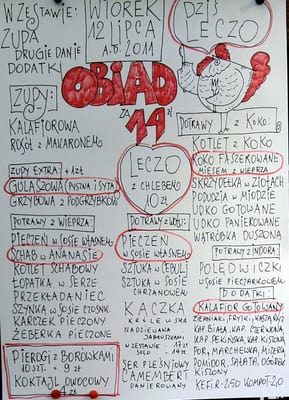 W ZESTAWIE:
ZUPA
DRUGIE DANIE
DODATKI
WTOREK
12 LIPCA
A.D. 2011
DZIŚ
LECZO
OBIAD
ZA 14 zł
ZUPY:
KALAFIOROWA
ROSÓŁ Z MAKARONEM
ZUPY EXTRA: + 1 zł
GULASZOWA (OSTRA I SYTA)
GRZYBOWA Z PODGRZYBKÓW
POTRAWY Z WIEPRZA:
PIECZEŃ W SOSIE WŁASNYM
SCHAB W ANANASIE
KOTLET SCHABOWY
ŁOPATKA W SERZE
PRZEKŁADANIEC
SZYNKA W SOSIE CZOSNK.
KARCZEK PIECZONY
ŻEBERKA PIECZONE
PIEROGI Z BORÓWKAMI
10 SZT. = 9 zł
KOKTAJL OWOCOWY
4 zł
LECZO
Z CHLEBEM
10 zł
POTRAWY Z WOŁU:
PIECZEŃ
W SOSIE WŁASNYM
SZTUKA W CEBULI
SZTUKA W SOSIE
CHRZANOWYM
KACZKA
KRÓLEWSKA
NADZIEWANA
JABŁUSZKAMI
W ZESTAWIE
SOLO
SER PLEŚNIOWY
CAMEMBERT
PANIEROWANY
POTRAWY Z KOKO:
KOTLET Z KOKO
KOKO FASZEROWANE
MIĘSEM Z WIEPRZA
SKRZYDEŁKA W ZIOŁACH
PODUDZIA W MIODZIE
UDKO GOTOWANE
UDKO PANIEROWANE
WĄTRÓBKA DUSZONA
POTRAWY Z INDORA:
POLĘDWICZKI
W SOSIE PIECZARKOWYM
DODATKI:
KALAFIOR GOTOWANY
ZIEMNIAKI, FRYTKI, KASZA, RYŻ
KAP. BIAŁA, KAP. CZERWONA,
KAP. PEKIŃSKA, KAP. KISZONA
POR, MARCHEWKA, MIZERIA
POMIDOR, SAŁATA, OGÓREK
KISZONY
KEFIR 2,50 KOMPOT 2,0